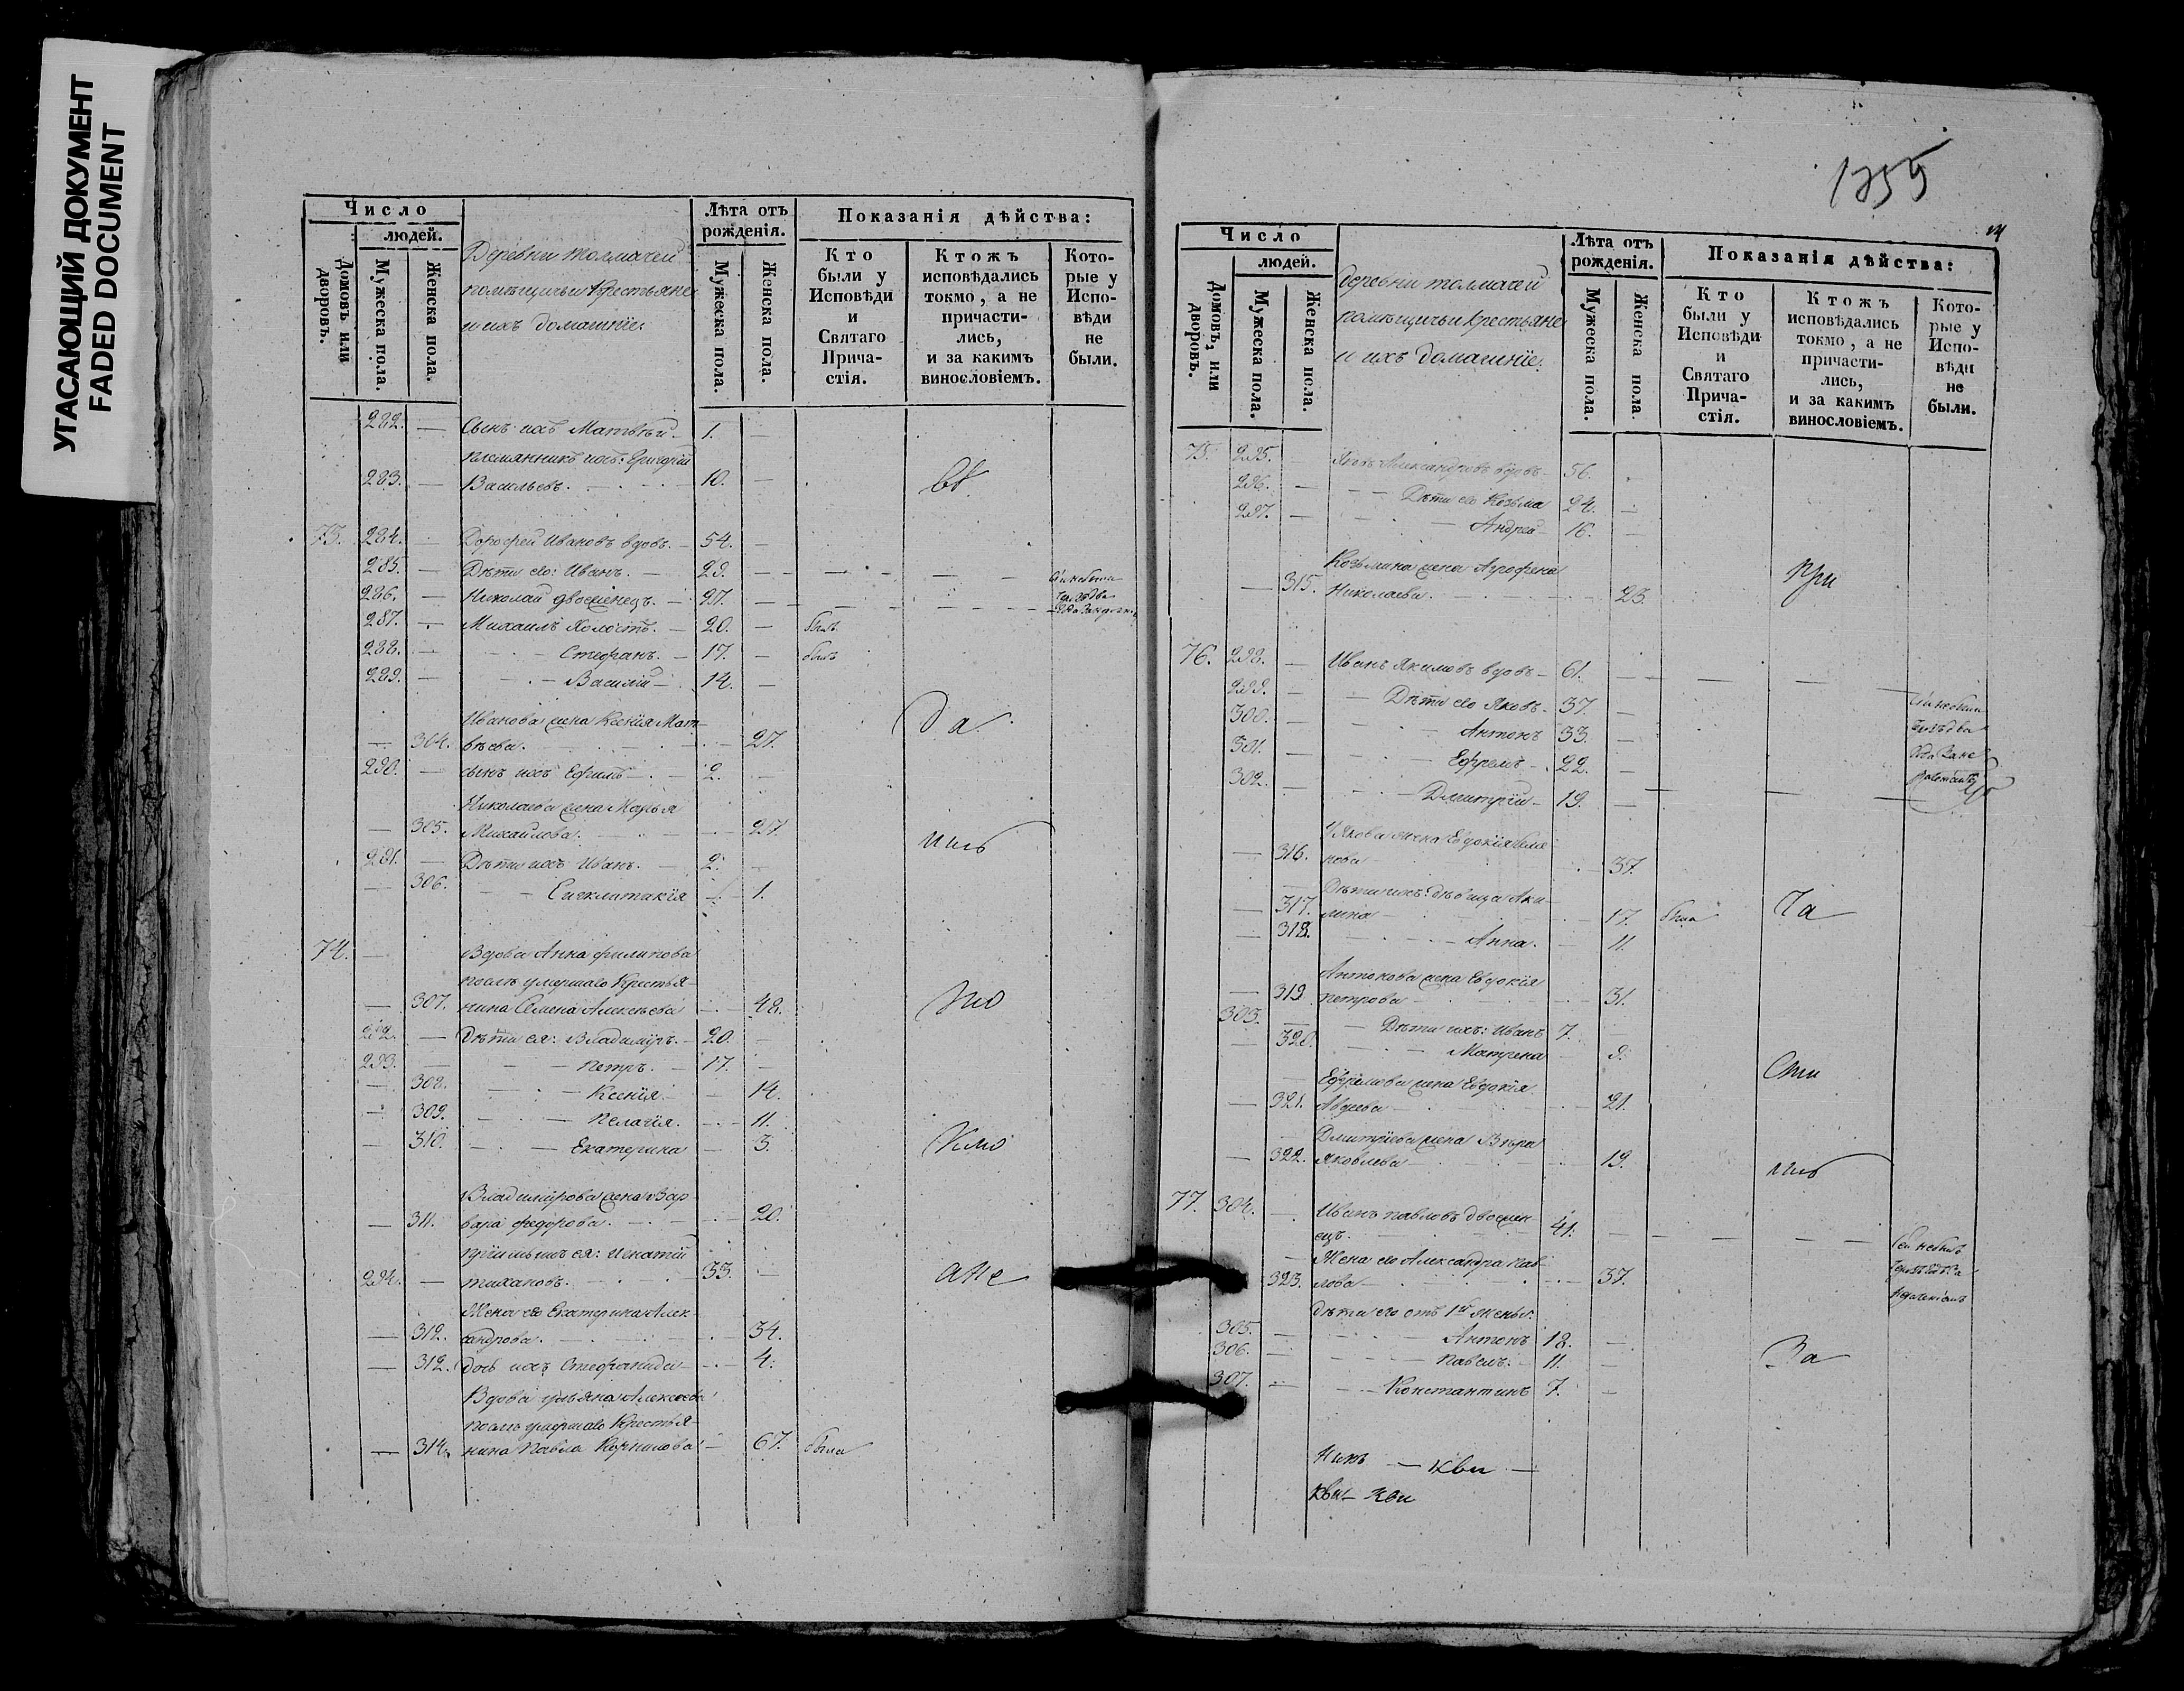 УГАСАЮЩИЙ ДОКУМЕНТ
FADED DOCUMENT
Число
людей.
Домовъ или дворовъ.
Мужеска пола.
Женска пола.
Деревни Толмачей
помѣщичьи крестьяне
и ихъ домашніе:
Лѣта отъ рожденія.
Мужеска пола.
Женска пола.
Показанія дѣйства:
Кто были у Исповѣди и Святаго Прича-стія.
Ктожъ исповѣдались токмо, а не причасти-лись, и за какимъ винословіемъ.
Кото-рые у Испо-вѣди не были.
282. — Сынъ ихъ Матвѣй — 1. —
Племянникъ ихъ: Григорій
283. — Васильевъ. — 10. —
73. 284. — Дорофей Ивановъ вдовъ. — 54. —
285. — Дѣти его: Иванъ. — 29. —
286. — Николай двоеженецъ. — 27. —
287. — Михаилъ холостъ. — 20. — былъ
288. — Стефанъ. — 17. — былъ
289. — Василій — 14. —
Иванова жена Ксенія Мат-
— 304. вѣева. — 27. да
290. — сынъ ихъ Ефимъ — 2. —
Николаева жена Марья
— 305. Михайлова. — 27.
291. — Дѣти ихъ Иванъ. — 2. —
— 306. — Сигклитикія — 1.
74. — Вдова Анна Филипова
послѣ умершаго Крестья-
— 307. нина Семена Алексѣева — 48.
292. — Дѣти ея: Владимиръ. — 20. —
293. — Петръ. — 17. —
— 308. — Ксенія — 14.
— 309. — Пелагія. — 11.
— 310. — Екатерина — 3.
Владимірова жена Вар-
— 311. вара Федорова. — 20.
Пріимышъ ея: Игнатій
294. — Тихановъ. — 33. —
Жена его Екатерина Алек-
— 312. сандрова. — 34.
— 312. Дочь ихъ Стефанида — 4.
Вдова Ульяна Алексѣева
послѣ умершаго Крестья-
— 314. нина Павла Корнилова — 67. была
1255
Число
людей.
Домовъ, или дворовъ.
Мужеска пола.
Женска пола.
Деревни Толмачей
помѣщичьи крестьяне
и ихъ домашніе:
Лѣта отъ рожденія.
Мужеска пола.
Женска пола.
Показанія дѣйства:
Кто были у Исповѣди и Святаго Прича-стія.
Ктожъ исповѣдались токмо, а не причасти-лись, и за какимъ винословіемъ.
Кото-рые у Испо-вѣди не были.
75. 295. — Яковъ Александровъ вдовъ — 56.
296. — Дѣти его Козьма 24. —
297. — Андрей — 16. —
Козьмина жена Агрофена
— 315. Николаева. — 23. при
76. 298. — Иванъ Якимовъ вдовъ — 61. —
299. — Дѣти его Яковъ — 37. —
300. — Антонъ 33. —
301. — Ефремъ — 22. —
302. — Дмитрій — 19. —
Якова жена Евдокія
— 316. — 37.
Дѣти ихъ: дѣвица Аки-
— 317. лина — 17. была ча
— 318. — Анна. — 11.
Антонова жена Евдокія
— 319. Петрова — 31.
303. — Дѣти ихъ: Иванъ 7. —
— 320. — Матрена — 9.
сти
Ефремова жена Евдокія
— 321. Авдеева — 21.
Дмитріева жена Вѣра
— 322. Яковлева — 19.
77. 304. — Иванъ Павловъ двоежен-
ецъ. — 41. —
Жена его Александра Пав-
323. лова — 37.
Дѣти его отъ 1й жены:
305. — Антонъ 18. —
306. — Павелъ. 11. — За
307. — Константинъ 7. —